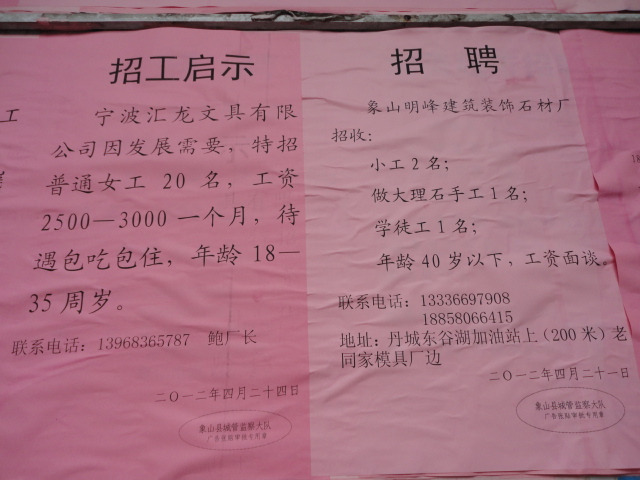 工
招工启示
宁波汇龙文具有限
公司因发展需要，特招
普通女工 20 名，工资
2500—3000 一个月，待
遇包吃包住，年龄 18—
35 周岁。
联系电话：13968365787 鲍厂长
二〇一二年四月二十四日
象山县城管监察大队
广告张贴审核专用章
招 聘
象山明峰建筑装饰石材厂
招收：
小工 2 名；
做大理石手工 1 名；
学徒工 1 名；
年龄 40 岁以下，工资面谈。
联系电话：13336697908
18858066415
地址：丹城东谷湖加油站上（200 米）老
同家模具厂边
二〇一二年四月二十一日
象山县城管监察大队
广告张贴审核专用章